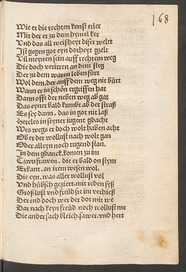 168
Wie er die rechten kunst erler
Mit der er zu dem hymel ker
Und das all weißheyt diser welt
Ist gegen got eyn dorheyt gzelt
Vil meynen sein auff rechtem weg
Die doch verirren an dem steg
Der zu dem waren leben fürt
Wol dem, der auff dem weg nit
Wann er in schon ergriffen hat
Dann offt der neben weg ab gat
Das eyner bald kumbt ab der straß
Es sey dann, das in got nit laß
Hercules in seyner iugent gdacht
Wes wegs er doch wolt haben acht
Ob er der wollust nach wolt gan
Oder alleyn noch tugend stan.
In dem gdanck, komen zu im
frawen, die er bald on stym
Erkant, an irem wesen wol
Die eyn, was aller wollust vol
Und hübsch geziert, mit reden süß
Groß lust und freüd sie im verhieß
Der end doch wer der dot mit we
Dar nach keyn freüd noch wollust me
Die ander sach bleich, sawer, und hert